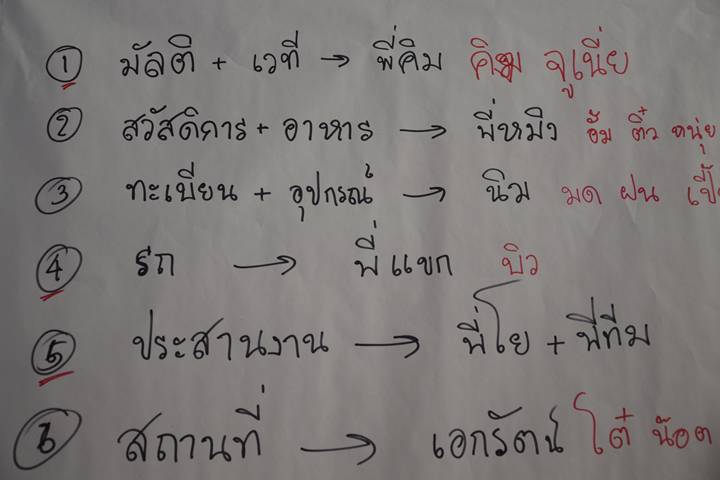 ① มัลติ + เวที → พี่คิม คิม จูเนี่ย
② สวัสดิการ + อาหาร → พี่หมึง อั้ม ติ๋ว หนุ่ย
③ ทะเบียน + อุปกรณ์ → นิม มด ฝน
④ รถ → พี่แขก บิว
⑤ ประสานงาน → พี่โย + พี่ทีม
⑥ สถานที่ → เอกรัตน์ โต๋ น๊อต